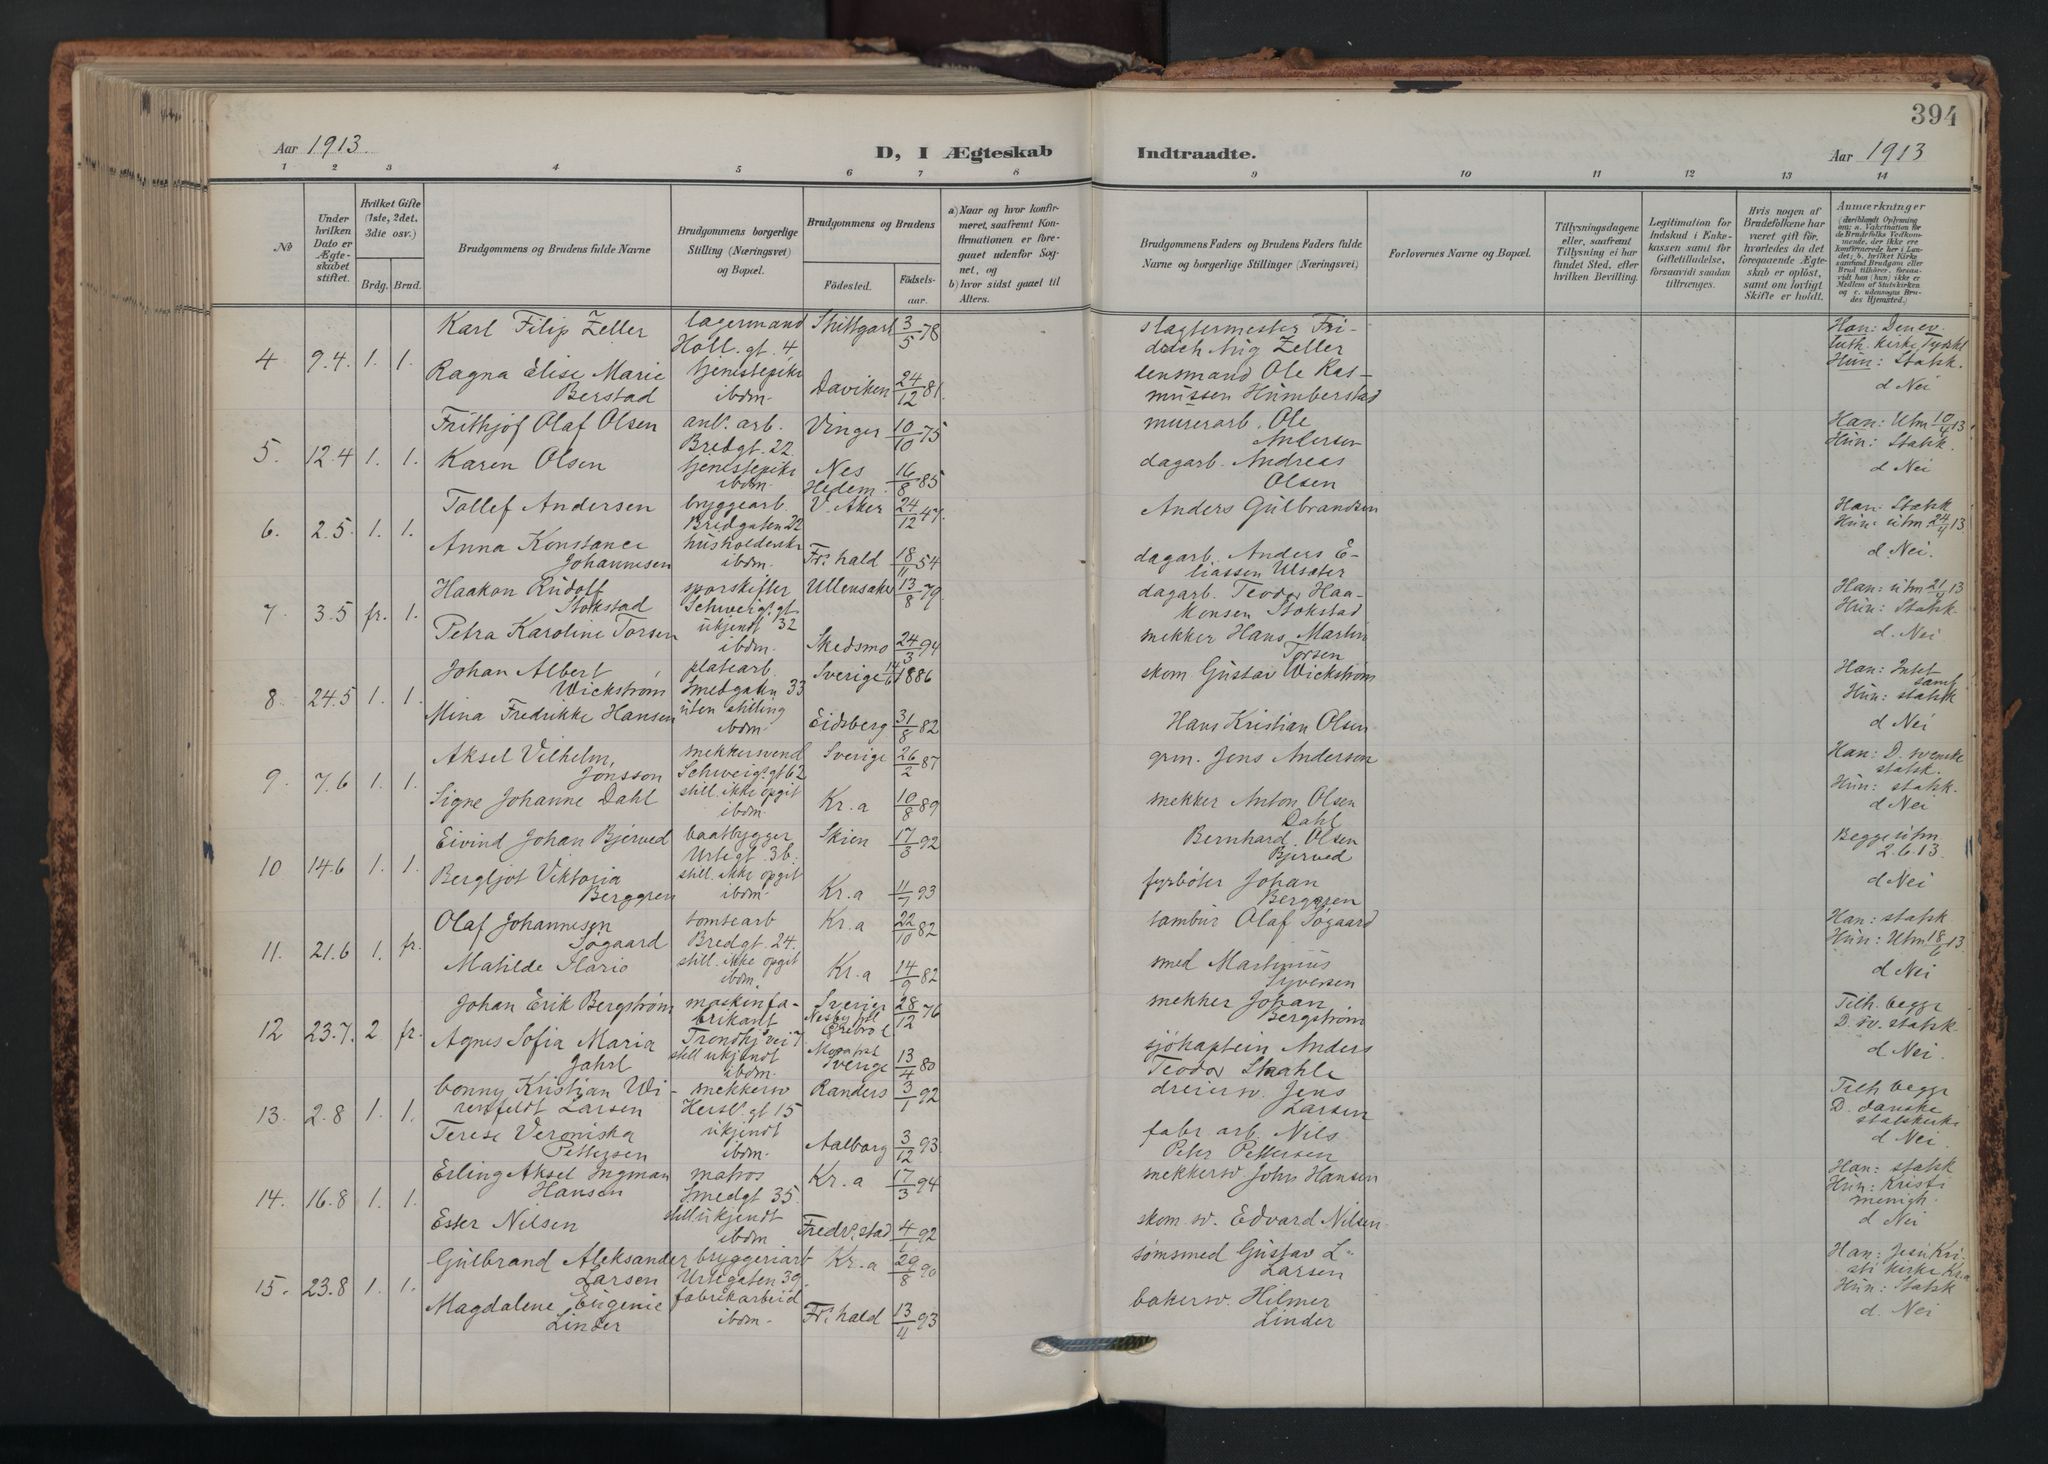 394
Aar 1913.
D, I Ægteskab
Indtraadte.
Aar 1913
1 2 3 4 5 6 7 8 9 10 11 12 13 14
No
Under hvilken Dato er Ægteskabet stiftet.
Hvilket Gifte (1ste, 2det. 3die osv.)
Brdg. Brud.
Brudgommens og Brudens fulde Navne
Brudgommens borgerlige Stilling (Næringsvei) og Bopæl.
Brudgommens og Brudens
Födested.
Födsels-aar.
a) Naar og hvor konfirmeret, saafremt Konfirmationen er foregaaet udenfor Sognet, og
b) hvor sidst gaaet til Alters.
Brudgommens Faders og Brudens Faders fulde Navne og borgerlige Stillinger (Næringsvei)
Forlovernes Navne og Bopæl.
Tillysningsdagene eller, saafremt Tillysning ei har fundet Sted, efter hvilken Bevilling.
Legitimation for Indskud i Enkekassen samt for Giftetilladelse, forsaavidt saadan tiltrænges.
Hvis nogen af Brudefolkene har været gift för, hvorledes da det foregaaende Ægteskab er oplöst, samt om lovligt Skifte er holdt.
Anmærkninger
4 9.4. 1. 1.
Karl Filip Zeller
lagermand
Holl. gt. 4
Stuttgart 3/5 78
slagtermester Fri-
drich Aug Zeller
Han: Den ev.
luth. kirke Tyskl
Ragna Elise Marie
Berstad
tjenestepike
ibdm.
Daviken 24/12 81.
lensmand Ole Ras-
mussen Humberstad
Hun: Statsk.
d Nei
5. 12.4 1. 1.
Frithjof Olaf Olsen
anl. arb.
Bredgt. 22.
Vinger 10/10 75
murerarb. Ole
Andersen
Han: Utm 10/4 13
Hun: Statsk.
Karen Olsen
tjenestepike
ibdm.
Nes
Hedem. 16/8 85
dagarb. Andreas
Olsen
d Nei
6. 2.5. 1. 1.
Tollef Andersen
bryggearb.
Bredgaten 22
V. Aker 24/12 47.
Anders Gulbrandsen
Han: Statsk
Hun: utm 24/4 13
Anna Konstance
Johannesen
husholderske
ibdm.
Fr.hald 18/11 54
dagarb. Anders E-
liassen Ulsæter
d Nei.
7. 3.5 fr. 1.
Haakon Rudolf
Stokstad
sporskifter
Schweigs. gt
32
Ullensaker 13/8 79.
dagarb. Teodor Haa-
konsen Stokstad
Han: utm 21/4 13
Hun: Statsk.
Petra Karoline Torsen
ukjendt
ibdm.
Skedsmo 24/3 94
mekker Hans Martin
Torsen
d. Nei
8. 24.5 1. 1.
Johan Albert
Wickstrøm
platearb.
Smedgaten 33
Sverige 14/6 1886
skom. Gustav Wickstrøm
Han: Intet
samf.
Hun: statsk
Mina Fredrikke Hansen
uten stilling
ibdm.
Eidsberg 31/8 82
Hans Kristian Olsen
d Nei
9. 7.6 1. 1.
Aksel Vilhelm
Jonsson
mekkersvend
Schweigs. gt 62
Sverige 26/2 87
grm. Jens Anderson
Han: D. svenske
statsk.
Hun: statsk.
Signe Johanne Dahl
still. ikke opgit
ibdm.
Kr.a 10/8 89
mekker Anton Olsen
Dahl
d Nei
10 14.6 1. 1.
Eivind Johan Bjerved
baatbygger
Urtegt. 36.
Skien 17/3 92
Bernhard Olsen
Bjerved
Begge utm.
2.6.13.
Bergljot Viktoria
Berggren
still. ikke opgit
ibdm.
Kr.a 11/7 93
fyrbøter Johan
Berggren
d Nei
11. 21.6 1. fr.
Olaf Johannesen
Søgaard
tomtearb
Bredgt. 24.
Kr.a 22/10 82
tambur Olaf Søgaard
Han: statsk
Hun: Utm 18/6 13
Matilde Ilario
still. ikke opgit
ibdm.
Kr.a 14/9 82
smed Martinius
Syversen
d Nei
12 23.7. 2 fr.
Johan Erik Bergstrøm
maskinfa-
brikant
Trondhj.vei 7
Sverige
Örebro l 28/12 76
mekker Johan
Bergstrøm
Tilh. begge
D. sv. statsk.
Agnes Sofia Maria
Jahrl
still ukjendt
ibdm.
Sverige 13/4 80
sjökaptein Anders
Teodor Staahle
d Nei.
13. 2.8 1. 1.
Conny Kristian Wi-
renfeldt Larsen
mekkersv
Hersl. gt 15
Randers 3/1 92
dreiersv. Jens
Larsen
Tilh begge
D. danske
statskirke
Terese Veroniska
Pettersen
ukjendt
ibdm.
Aalborg 3/12 93.
fabr. arb. Nils
Peter Pettersen
d Nei
14. 16.8 1. 1.
Erling Aksel Ingman
Hansen
matros
Smedgt 35.
Kr.a 17/3 94
mekkersv John Hansen
Han: statsk
Hun: Kristi
menigh.
Ester Nilsen
still ukjendt
ibdm
Fredr.stad 4/1 92
skom. sv. Edvard Nilsen
d Nei
15. 23.8 1. 1.
Gulbrand Aleksander
Larsen
bryggeriarb
Urtegaten 39.
Kr.a 29/8 90
sømsmed Gustav L.
Larsen
Han: Jesu Kri-
sti kirke Kr.a
Hun: Statsk
Magdalene Eugenie
Linder
fabrikarbeid
ibdm.
Fr.hald 13/4 93
bakersv. Hilmer
Linder
d. Nei